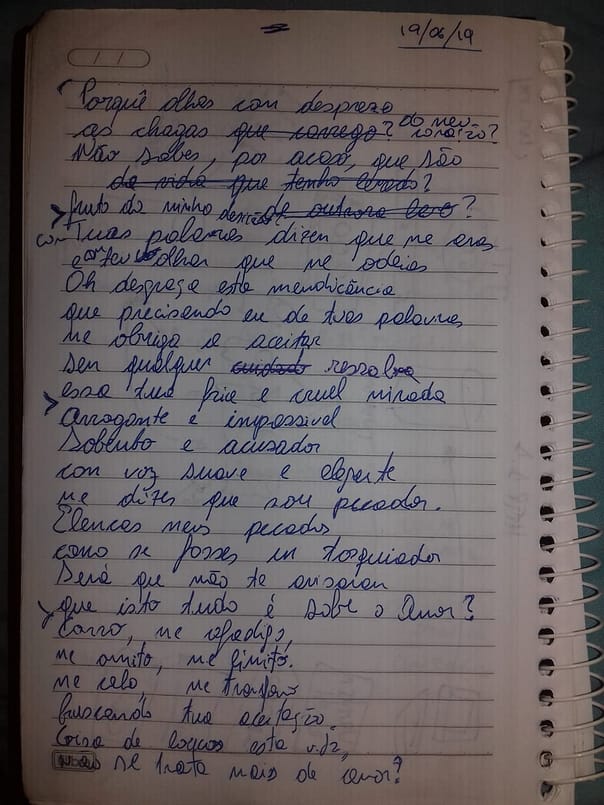 19/06/19
/ /
Porquê olhas com desprezo
as chagas que carrego? do meu coração?
Não sabes, por acaso, que são
da vida que tenho levado?
fruto da minha de outrora ?
com Tuas palavras dizem que me amas
e com teu olhar que me odeias
Oh desgraça esta mendicância
que precisando eu de tuas palavras
me obriga a aceitar
sem qualquer cuidado ressalva
essa tua fria e cruel mirada
Arrogante e impassível
Soberbo e acusador
com voz suave e elegante
me dizes que sou pecador.
Elencas meus pecados
como se fosses um torquiador
Será que não te avisaram
que isto tudo é sobre o Amor?
Corro, me afadigo,
me omito, me limito.
me calo, me
buscando tua aceitação.
Coisa de loucos esta vida,
não se trata mais de amor?